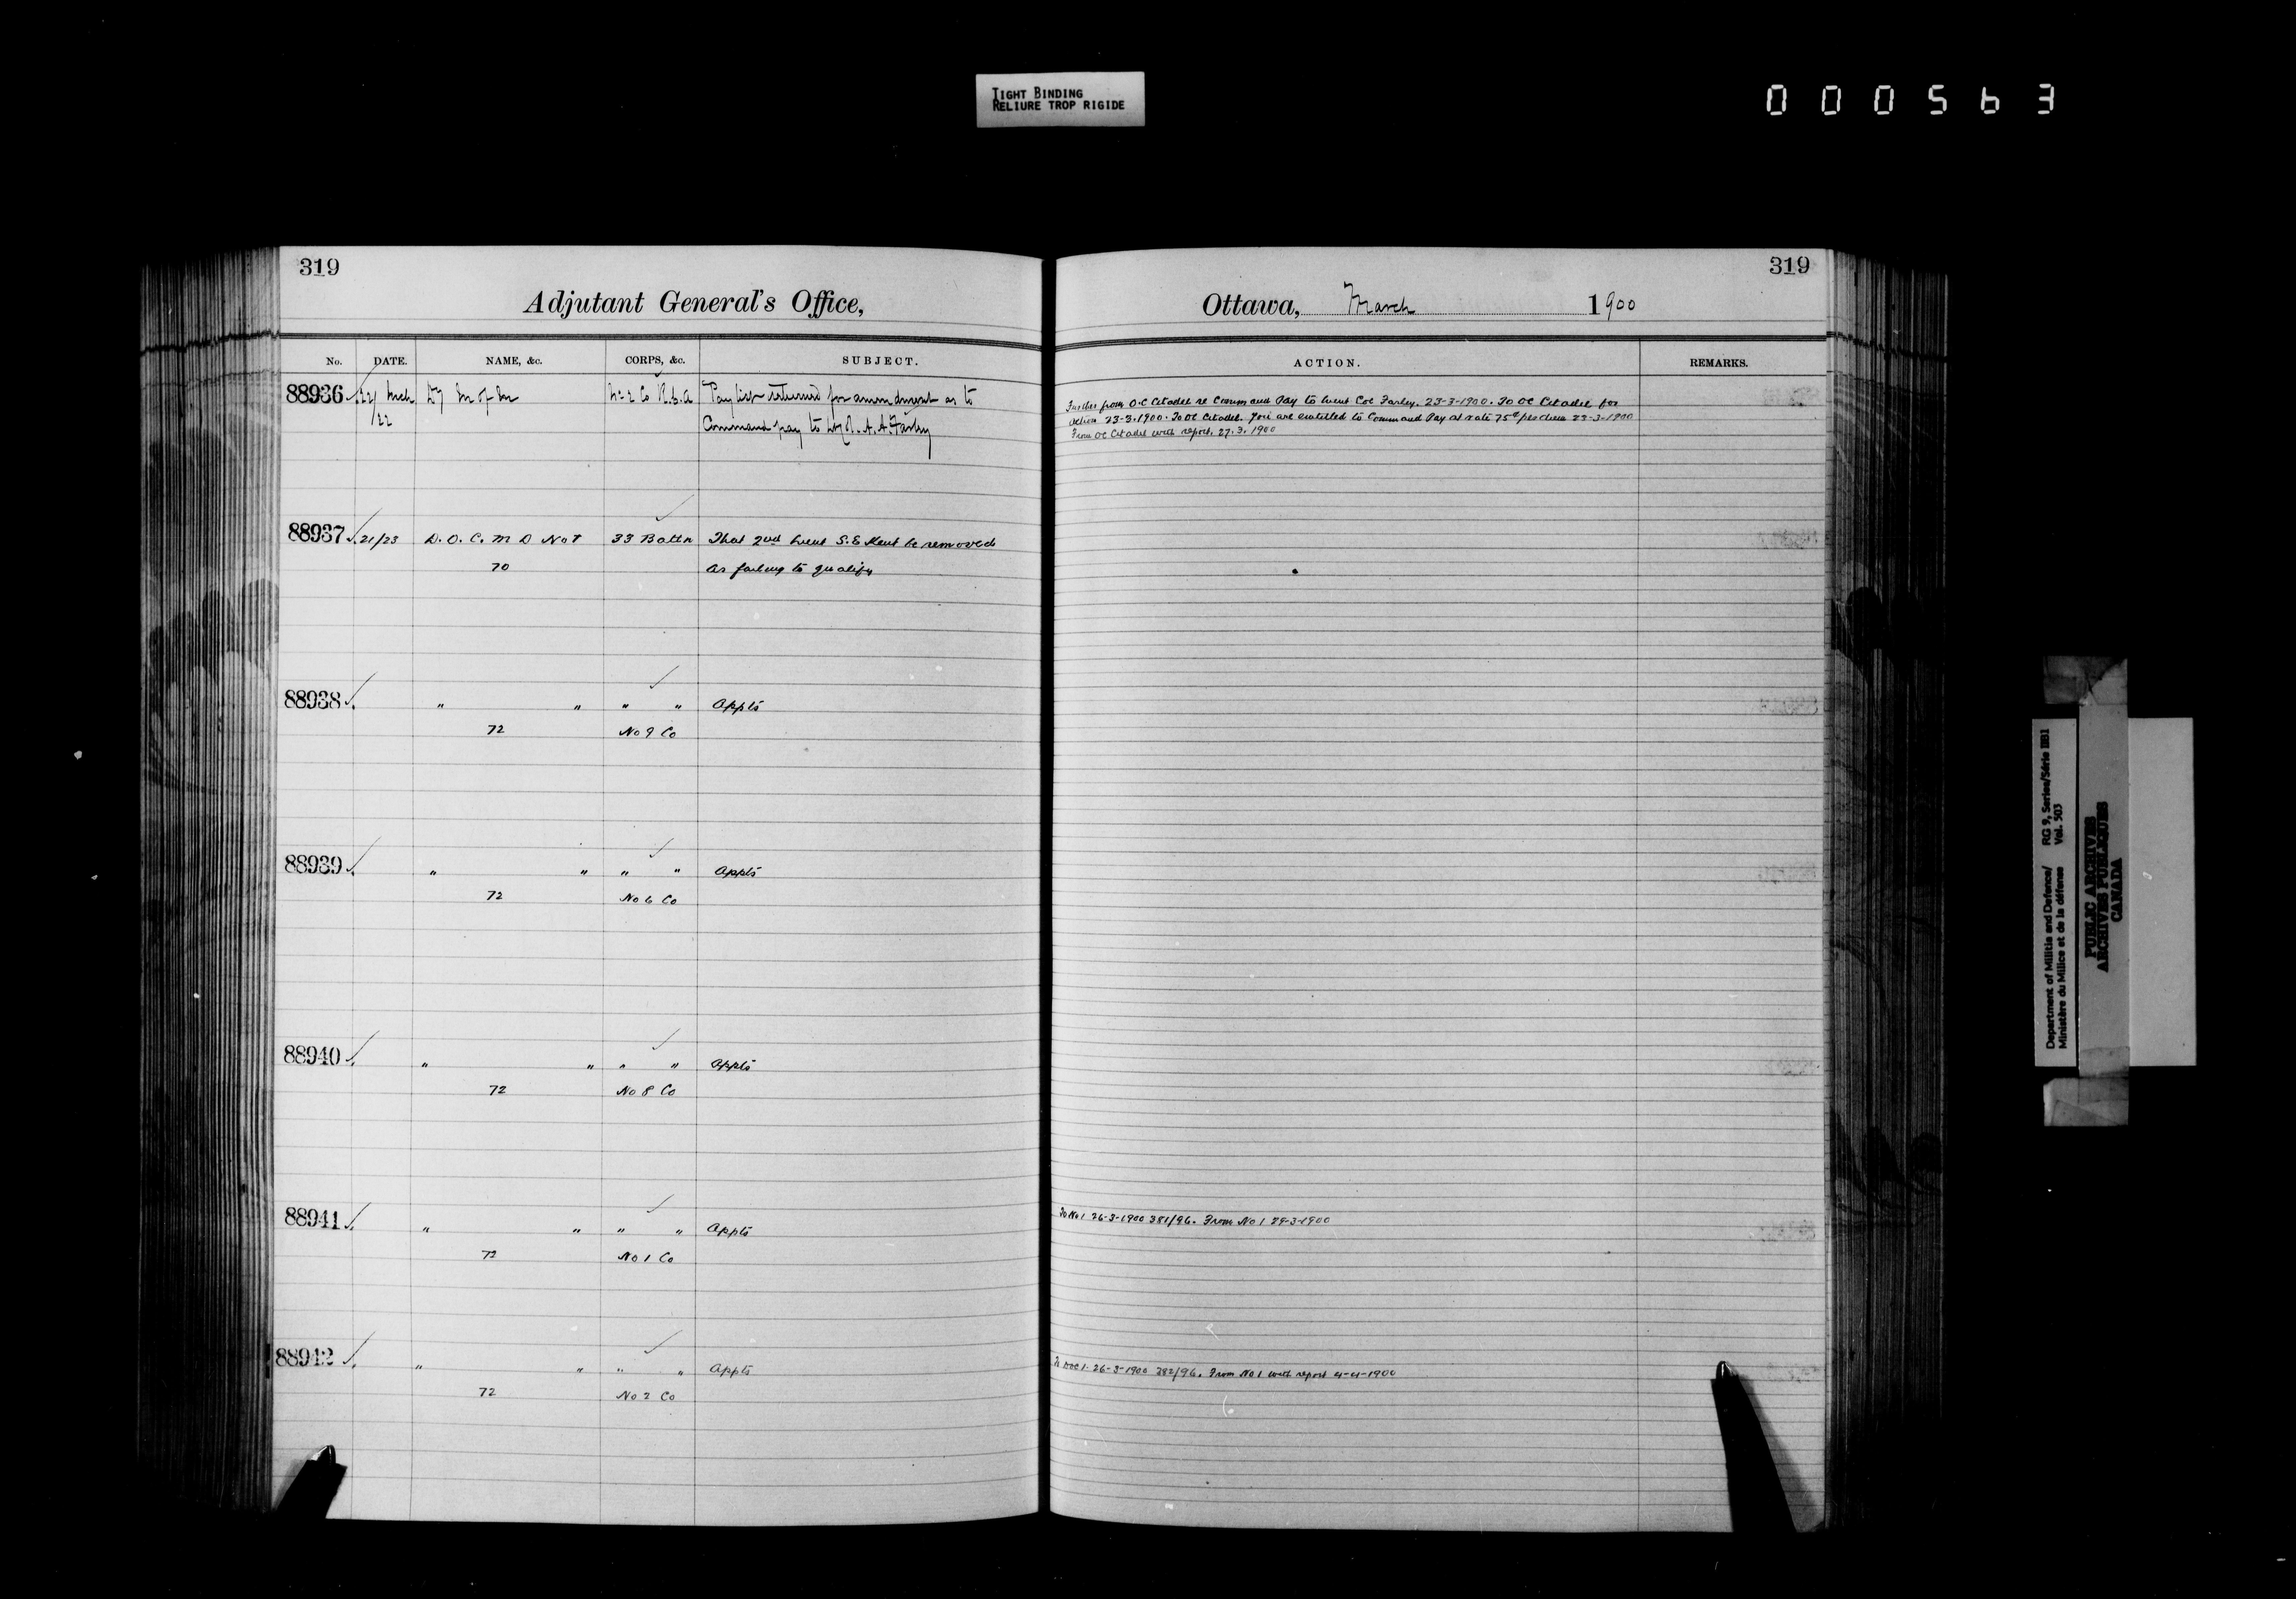 TIGHT BINDING
RELIURE TROP RIGIDE
000563
319
Adjutant General's Office,
No. DATE. NAME, &c. CORPS, &c. SUBJECT.
88936 22/ Mch Dy M of M No 2 Co R.C.A Pay list returned for amendment as to
/22 Command pay to A. A. Farley
88937 21/23 D. O. C. M D No 1 33 Battn That 2nd Lieut S. E Kent be removed
70 as failing to qualify
88938 " " " " Appts
72 No 9 Co
88939 " " " " Appts
72 No 6 Co
88940 " " " " Appts
72 No 8 Co
88941 " " " " Appts
72 No 1 Co
88942 " " " " Appts
72 No 2 Co
319
Ottawa, March 1900
ACTION. REMARKS.
Further from O.C Citadel re Command Pay to Lieut Col Farley. 23-3-1900. To OC Citadel for
action 23-3-1900. To OC Citadel. You are entitled to Command Pay at rate 75c per diem 23-3-1900
From OC Citadel with report. 27.3.1900
To No 1 26-3-1900 381/96. From No 1 29-3-1900
To DOC 1. 26-3-1900 382/96. From No 1 with report 4-4-1900
Department of Militia and Defence/ RG 9, Series/Série IIB1
Ministère du Milice et de la défense Vol. 503
PUBLIC ARCHIVES
ARCHIVES PUBLIQUES
CANADA